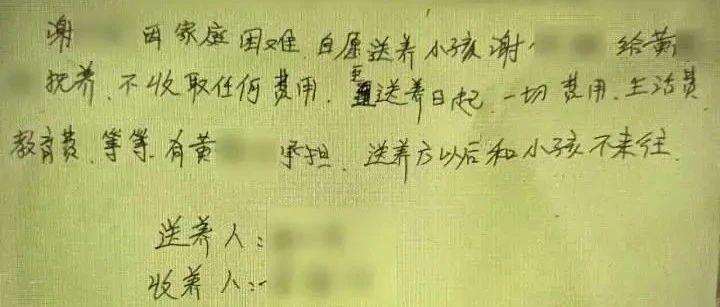 谢 因家庭困难.自愿送养小孩谢 给黄
抚养.不收取任何费用.至送养日起.一切费用.生活费
教育费.等等.有黄 承担.送养方以后和小孩不来往.
送养人:
收养人: